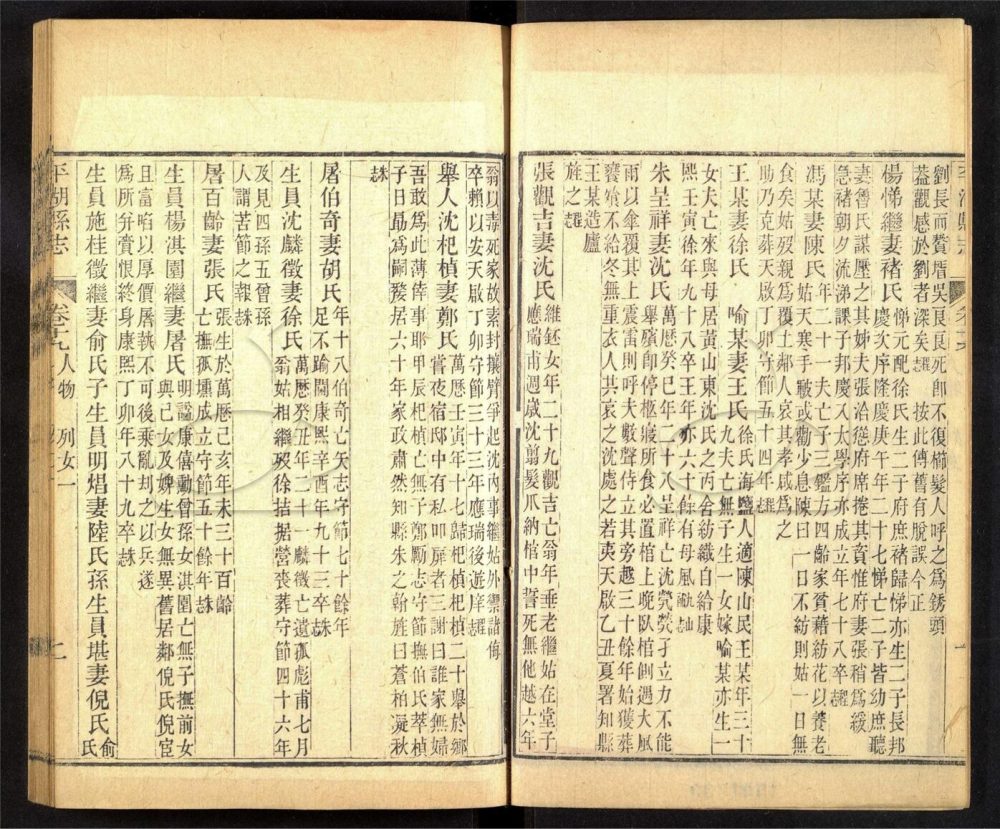 劉長而贅厝吳艮艮死卽不復櫛髮人呼之爲銹頭
菇觀感於劉者深矣趯 按此傳舊有脫誤今正
楊悌繼妻褚氏 悌元配徐氏生二子府庶褚歸悌亦生二子長邦
慶次序隆慶庚午年二十七悌亡二子皆幼庶聽
妻魯氏謀壓之其姊夫張洽慫府席捲其貲惟府妻張稍爲緩
急褚朝夕流涕課子邦慶入太學序亦成立年七十八卒趯
馮某妻陳氏 年二十一夫亡子三鑑方四齡家貧藉紡花以養老
姑天寒手皸或勸少息陳曰一日不紡則姑一日無
食矣姑歿親爲覆土鄰人哀其孝感爲之
助乃克葬天啟丁卯守節五十四年趯
王某妻徐氏 喻某妻王氏 徐氏海鹽人適陳山民王某年三十
九夫亡無子生一女嫁喻某亦生一
女夫亡來與母居黃山東沈氏之丙舍紡織自給康
熙壬寅徐年九十八卒王年亦六十餘有母風
朱呈祥妻沈氏 萬曆癸巳年二十八呈祥亡沈煢煢孑立力不能
舉殯卽停柩寢所食必置棺上晚臥棺側遇大風
雨以傘覆其上震雷則呼夫數聲侍立其旁越三十餘年始獲葬
饔飧不給冬無重衣人共哀之沈處之若夷天啟乙丑夏署知縣
王某造廬
旌之趯
張觀吉妻沈氏 維鉦女年二十九觀吉亡翁年垂老繼姑在堂子
應瑞甫週歲沈翦髮爪納棺中誓死無他越六年
翁以毒死家故素封攘臂爭起沈內事繼姑外禦諸侮
卒賴以安天啟丁卯守節三十三年應瑞後遊庠趯
舉人沈杞楨妻鄭氏 萬曆壬寅年十七歸杞楨杞楨二十舉於鄉
嘗夜宿邸中有私叩扉者三謝曰誰家無婦
吾敢爲此薄倖事耶甲辰杞楨亡無子鄭勵志守節撫伯氏萃楨
子日勗爲嗣嫠居六十年家政肅然知縣朱之翰旌曰蒼柏凝秋
誌
屠伯奇妻胡氏 年十八伯奇亡矢志守節七十餘年
足不踰閫康熙辛酉年九十三卒誌
生員沈麟徵妻徐氏 萬曆癸丑年二十一麟徵亡遺孤彪甫七月
翁姑相繼歿徐拮据營喪葬守節四十六年
及見四孫五曾孫
人謂苦節之報誌
屠百齡妻張氏 張生於萬曆己亥年未三十百齡
亡撫孤壎成立守節五十餘年誌
生員楊淇園繼妻屠氏 明諡康僖勳曾孫女淇園亡無子撫前女
與己女及婢生女無異舊居鄰倪氏倪宦
且富啗以厚價屠執不可後乘亂劫之以兵遂
爲所幷賫恨終身康熙丁卯年八十九卒誌
生員施桂徵繼妻俞氏子生員明焻妻陸氏孫生員堪妻倪氏 俞
氏
平湖縣志 卷十九 人物 列女一 七